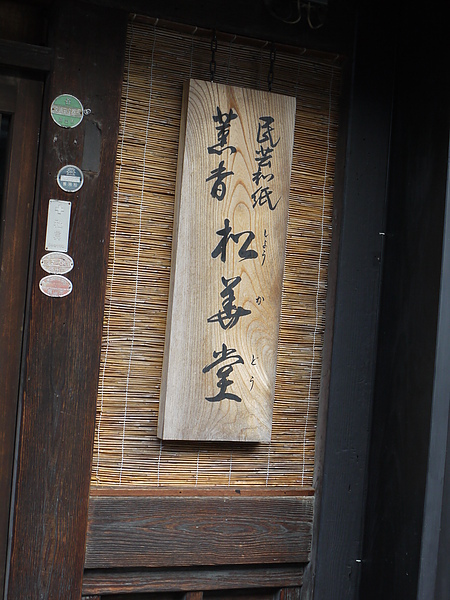 民芸和紙
薫香 松華堂
しょうかどう